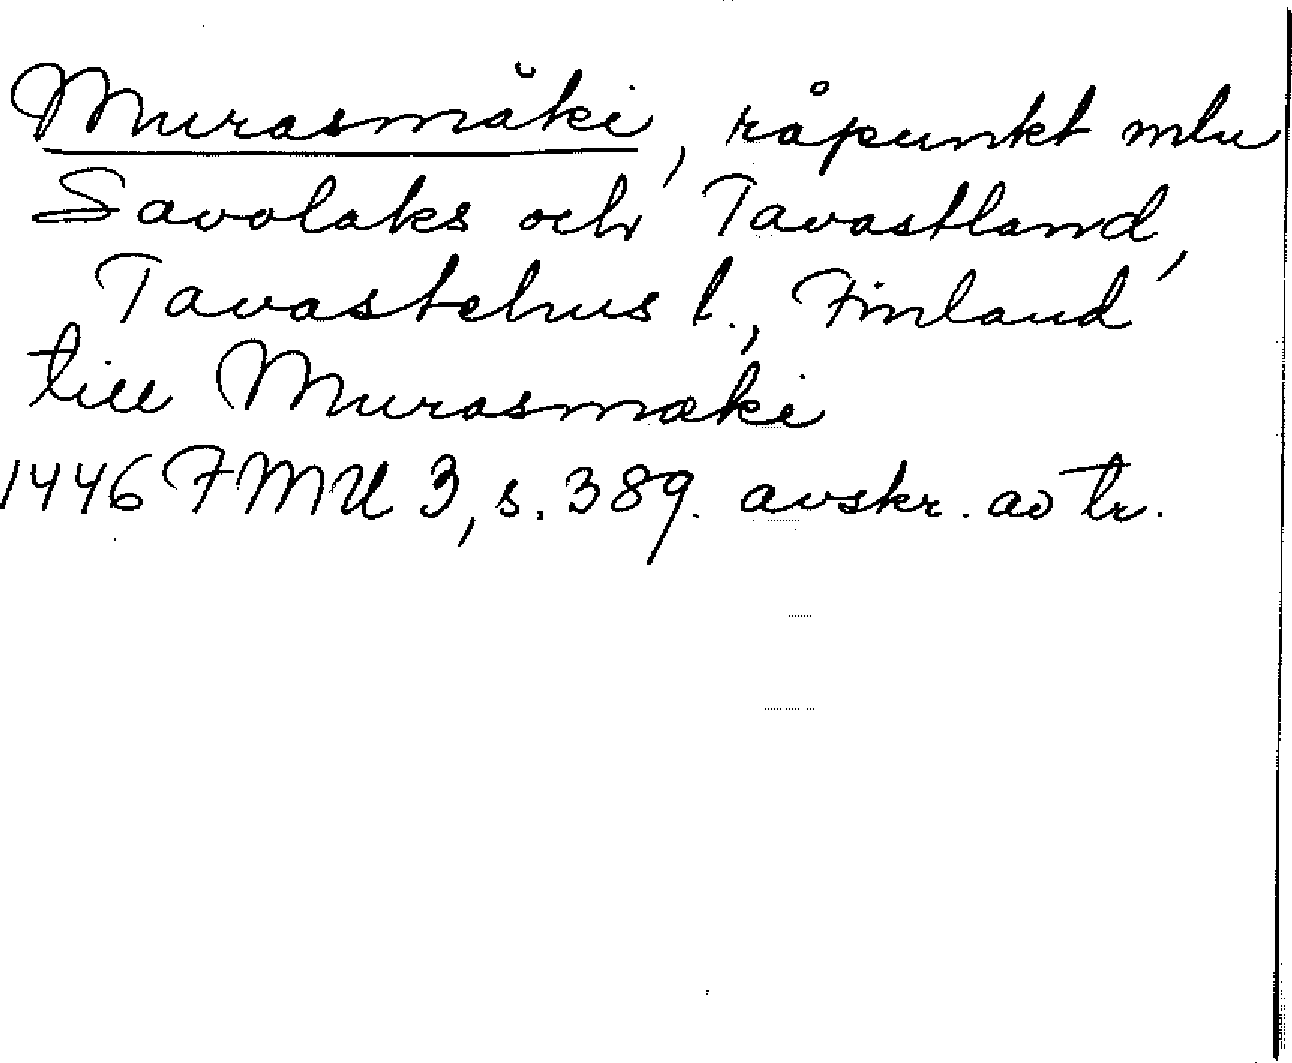 Murasmäki, råpunkt mlu
Savolaks och Tavastland,
Tavastehus l., Finland
till Murasmäki
1446 FMU 3, s. 389. avskr. av tr.